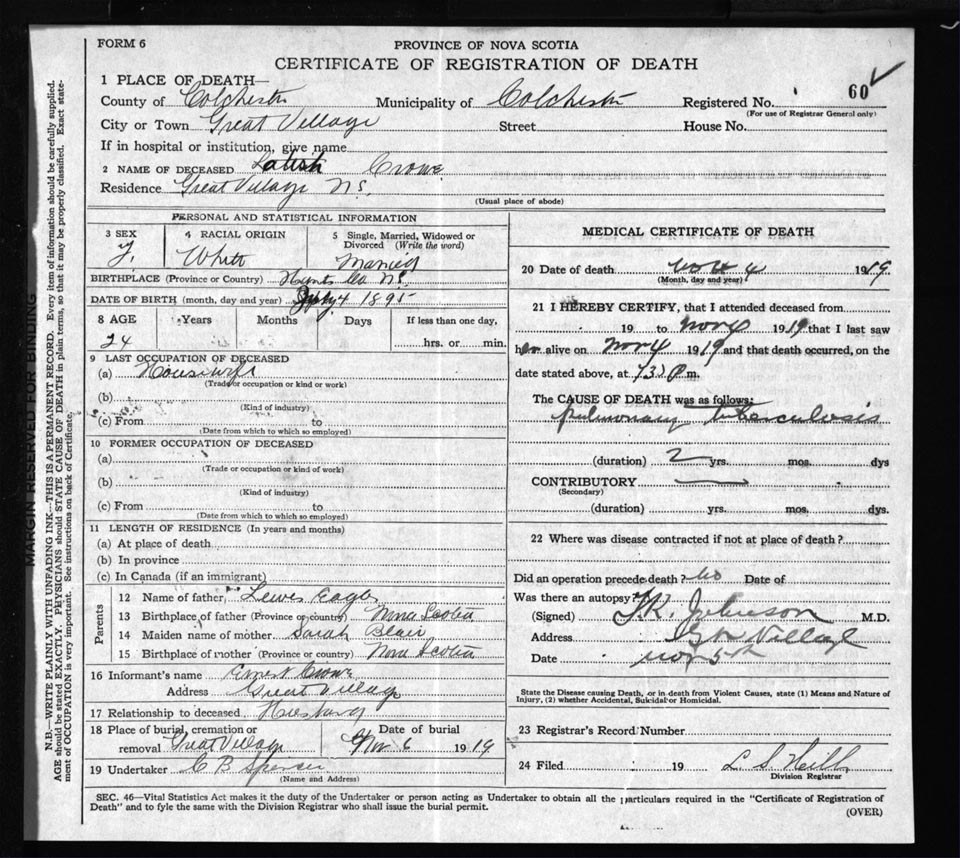 FORM 6
PROVINCE OF NOVA SCOTIA
CERTIFICATE OF REGISTRATION OF DEATH
1 PLACE OF DEATH—
County of Colchester Municipality of Colchester Registered No. 60
(For use of Registrar General only)
City or Town Great Village Street House No.
If in hospital or institution, give name
2 NAME OF DECEASED Crowe
Residence Great Village N.S.
(Usual place of abode)
PERSONAL AND STATISTICAL INFORMATION
3 SEX 4 RACIAL ORIGIN 5 Single, Married, Widowed or
Divorced (Write the word)
F. White Married
BIRTHPLACE (Province or Country) Hants Co N.S.
DATE OF BIRTH (month, day and year) 4 1895
8 AGE Years Months Days If less than one day,
24 hrs. or min.
9 LAST OCCUPATION OF DECEASED
(a) Housewife
(Trade or occupation or kind or work)
(b)
(Kind of industry)
(c) From to
(Date from which to which so employed)
10 FORMER OCCUPATION OF DECEASED
(a)
(Trade or occupation or kind of work)
(b)
(Kind of industry)
(c) From to
(Date from which to which so employed)
11 LENGTH OF RESIDENCE (In years and months)
(a) At place of death
(b) In province
(c) In Canada (if an immigrant)
Parents
12 Name of father, Lewis Eagle
13 Birthplace of father (Province or country) Nova Scotia
14 Maiden name of mother Sarah Blair
15 Birthplace of mother (Province or country) Nova Scotia
16 Informant's name Ernest Crowe
Address Great Village
17 Relationship to deceased Husband
18 Place of burial, cremation or Date of burial
removal Great Village Nov 6 1919
19 Undertaker C B Spencer
(Name and Address)
MEDICAL CERTIFICATE OF DEATH
20 Date of death Nov 4 1919
(Month, day and year)
21 I HEREBY CERTIFY, that I attended deceased from
19 to Nov 4 1919 that I last saw
her alive on Nov 4 1919 and that death occurred, on the
date stated above, at 730 P m.
The CAUSE OF DEATH was as follows:
pulmonary tuberculosis
(duration) 2 yrs. mos. dys
CONTRIBUTORY
(Secondary)
(duration) yrs. mos. dys.
22 Where was disease contracted if not at place of death?
Did an operation precede death? No Date of
Was there an autopsy?
(Signed) T.R. Johnson M.D.
Address Gt Village
Date Nov 5th
State the Disease causing Death, or in death from Violent Causes, state (1) Means and Nature of
Injury, (2) whether Accidental, Suicidal or Homicidal.
23 Registrar's Record Number
24 Filed 19 L. S.
Division Registrar
SEC. 46—Vital Statistics Act makes it the duty of the Undertaker or person acting as Undertaker to obtain all the particulars required in the "Certificate of Registration of
Death" and to fyle the same with the Division Registrar who shall issue the burial permit.
(OVER)
MARGIN RESERVED FOR BINDING
N.B.—WRITE PLAINLY WITH UNFADING INK—THIS IS A PERMANENT RECORD. Every item of information should be carefully supplied.
AGE should be stated EXACTLY. PHYSICIANS should STATE CAUSE OF DEATH in plain terms, so that it may be properly classified. Exact state-
ment of OCCUPATION is very important. See instructions on back of Certificate.